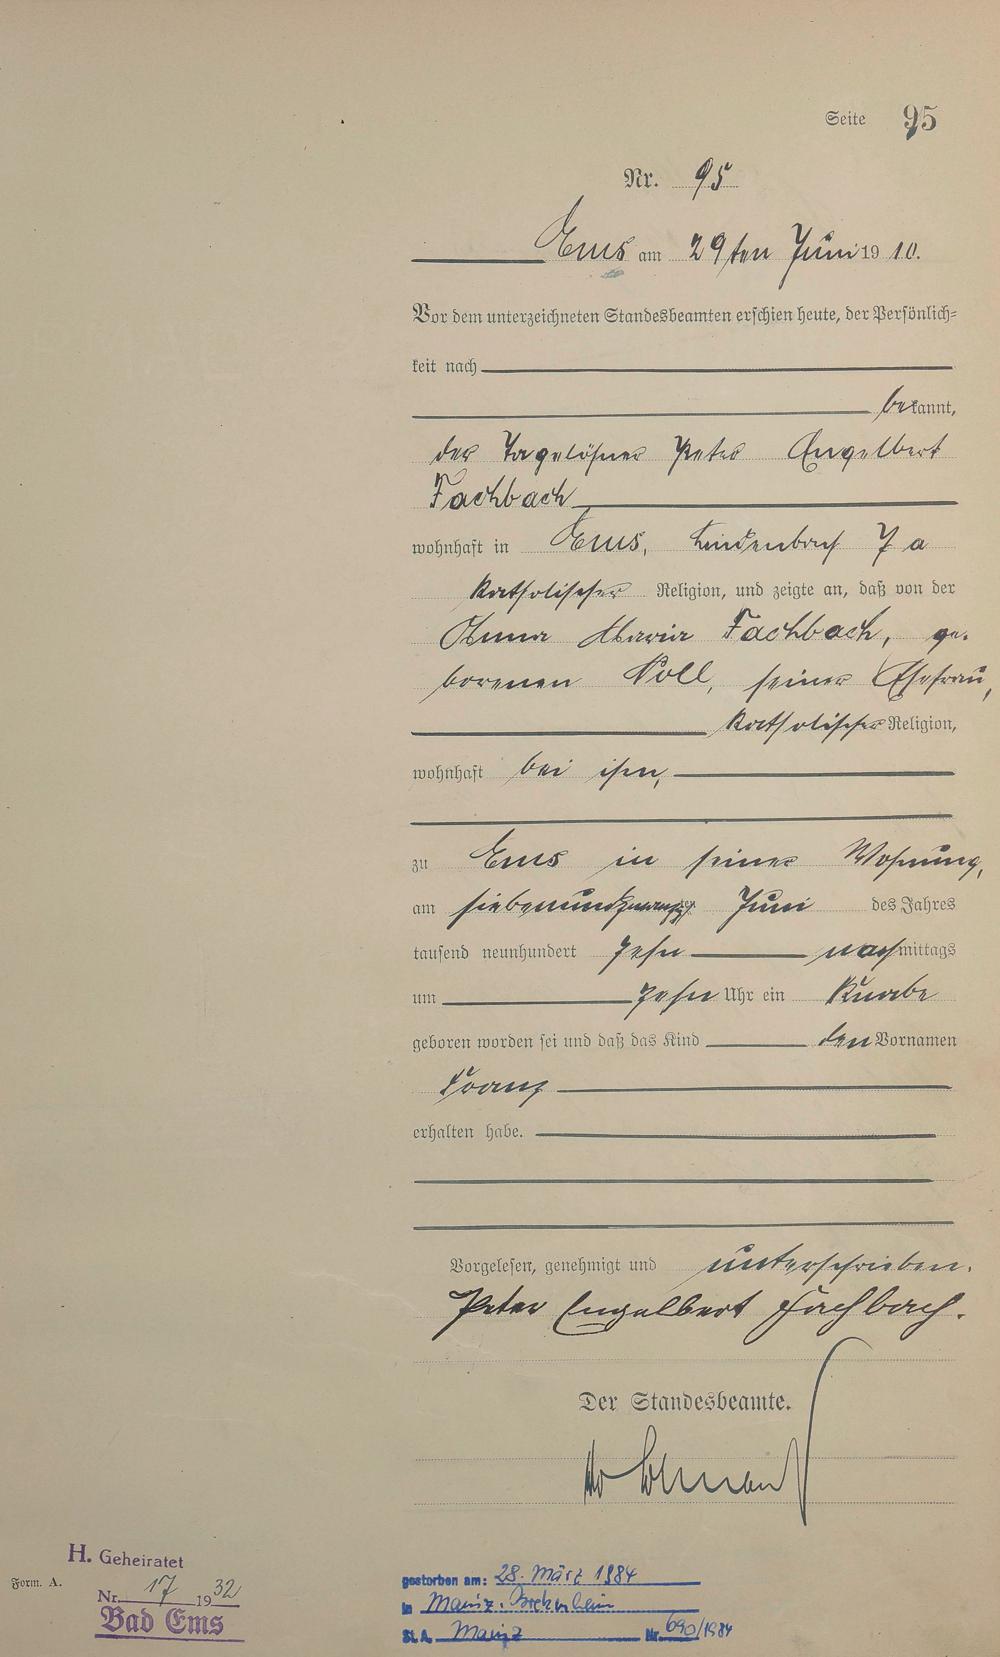 Seite 95
Nr. 95
Ems am 29ten Juni 1910.
Vor dem unterzeichneten Standesbeamten erschien heute, der Persönlich=
keit nach
bekannt,
der Tagelöhner Peter Engelbert
Fachbach
wohnhaft in Ems, Lindenbach 7 a
katholischer Religion, und zeigte an, daß von der
Anna Maria Fachbach, ge-
borenen Noll, seiner Ehefrau,
katholischer Religion,
wohnhaft bei ihm,
zu Ems in seiner Wohnung,
am siebenundzwanzigsten Juni des Jahres
tausend neunhundert zehn nachmittags
um zehn Uhr ein Knabe
geboren worden sei und daß das Kind den Vornamen
Franz
erhalten habe.
Vorgelesen, genehmigt und unterschrieben.
Peter Engelbert Fachbach.
Der Standesbeamte.
H. Geheiratet
Form. A.
Nr. 17 1932
Bad Ems
gestorben am: 28. März 1984
in Mainz-
St.A. Mainz Nr. 690/1984